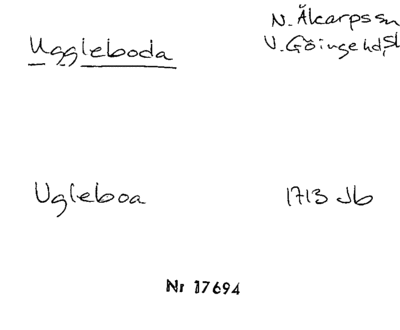 Uggleboda
N. Åkarpssn
V. Göinge hd, Sk
Ugleboa 1713 Jb
Nr 17694